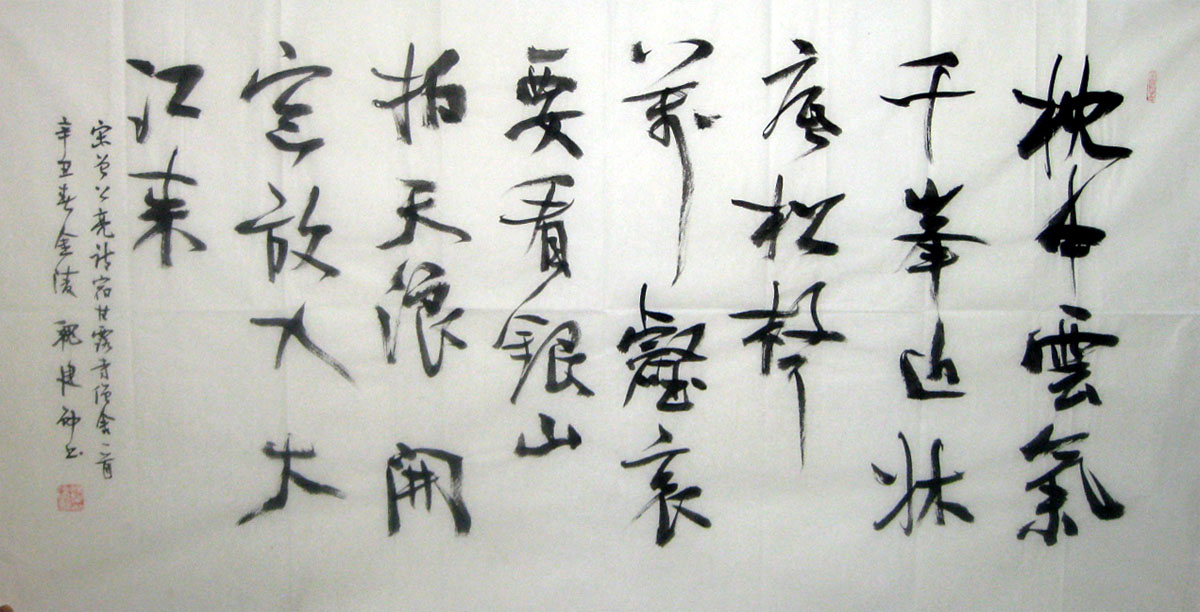 枕中雲氣
千峯近牀
底松聲
萬壑哀
要看銀山
拍天浪開
窗放入大
江来
宋曾公亮诗宿甘露寺僧舍一首
辛丑春金陵 魏建 书